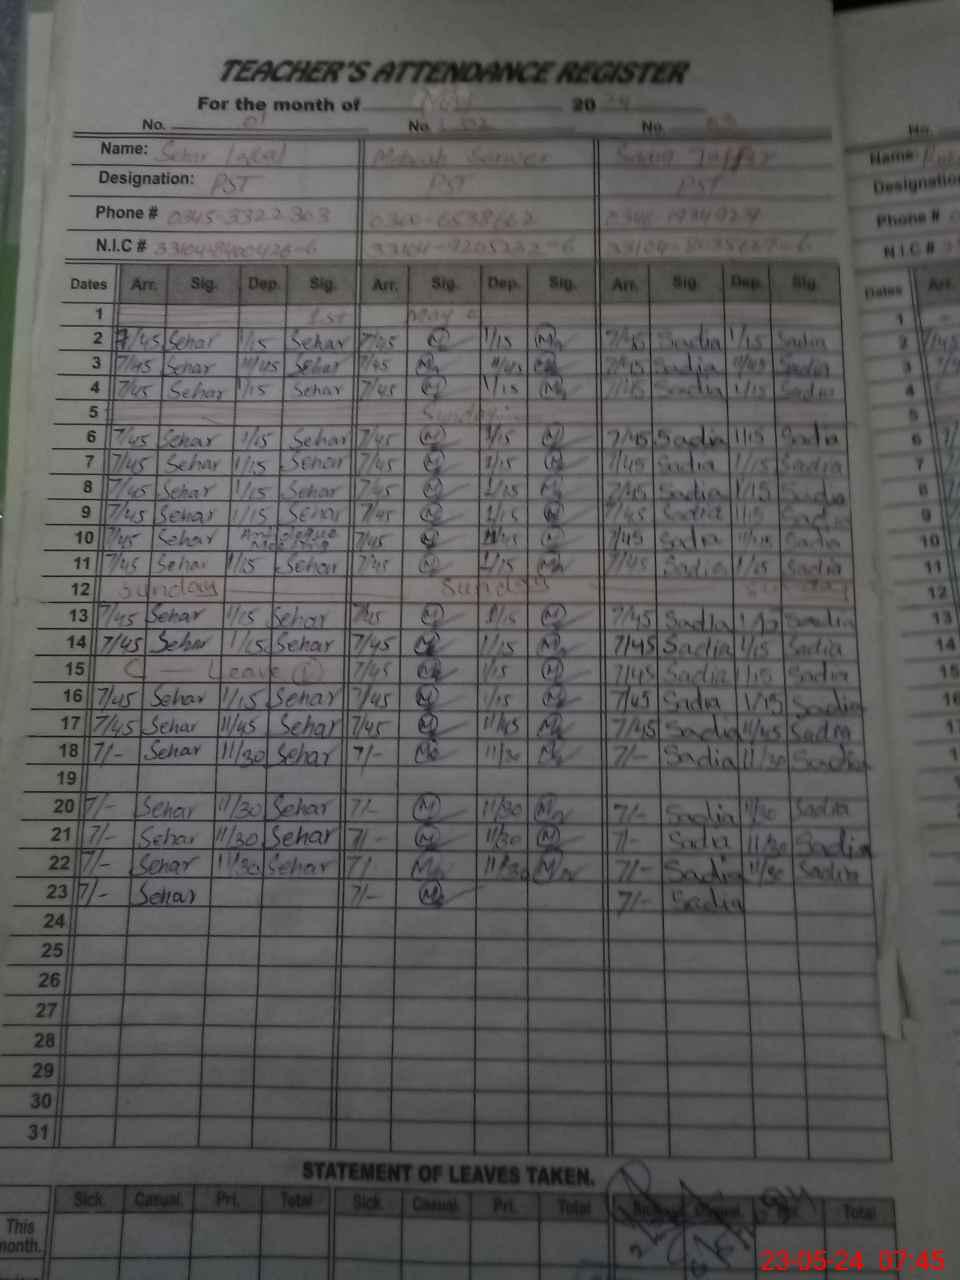 TEACHER'S ATTENDANCE REGISTER
For the month of May 2024
No. 01 No. 02 No. 03 No.
Name: Sehar Iqbal Sadia Name:
Designation: PST PST PST Designation
Phone # 0345-3322303 Phone #
N.I.C # N.I.C #
Dates Arr. Sig. Dep. Sig. Arr. Sig. Dep. Sig. Arr. Sig. Dep. Sig. Dates Arr.
1 1st May 1
2 7/45 Sehar 1/15 Sehar 7/45 M 1/15 M 7/45 Sadia 1/15 Sadia 2
3 7/45 Sehar 11/45 Sehar 7/45 M 11/45 7/45 Sadia 11/45 Sadia 3
4 7/45 Sehar 1/15 Sehar 7/45 M 1/15 M 7/45 Sadia 1/15 Sadia 4
5 Sunday 5
6 7/45 Sehar 1/15 Sehar 7/45 M 1/15 M 7/45 Sadia 1/15 Sadia 6
7 7/45 Sehar 1/15 Sehar 7/45 M 1/15 M 7/45 Sadia 1/15 Sadia 7
8 7/45 Sehar 1/15 Sehar 7/45 M 1/15 M 7/45 Sadia 1/15 Sadia 8
9 7/45 Sehar 1/15 Sehar 7/45 M 1/15 M 7/45 Sadia 1/15 Sadia 9
10 7/45 Sehar 7/45 M 11/45 M 7/45 Sadia Sadia 10
11 7/45 Sehar 1/15 Sehar 7/45 M 1/15 M 7/45 Sadia 1/15 Sadia 11
12 Sunday Sunday Sunday 12
13 7/45 Sehar 1/15 Sehar 7/45 M 1/15 M 7/45 Sadia Sadia 13
14 7/45 Sehar 1/15 Sehar 7/45 M 1/15 M 7/45 Sadia 1/15 Sadia 14
15 C — Leave L 7/45 M 1/15 M 7/45 Sadia 1/15 Sadia 15
16 7/45 Sehar 1/15 Sehar 7/45 M 1/15 M 7/45 Sadia 1/15 Sadia 16
17 7/45 Sehar 11/45 Sehar 7/45 M 11/45 M 7/45 Sadia 11/45 Sadia
18 7/- Sehar 11/30 Sehar 7/- M 11/30 M 7/- Sadia 11/30 Sadia
19
20 7/- Sehar 11/30 Sehar 7/- M 11/30 M 7/- Sadia 11/30 Sadia
21 7/- Sehar 11/30 Sehar 7/- M 11/30 M 7/- Sadia 11/30 Sadia
22 7/- Sehar 11/30 Sehar 7/- M 11/30 M 7/- Sadia 11/30 Sadia
23 7/- Sehar 7/- M 7/- Sadia
24
25
26
27
28
29
30
31
STATEMENT OF LEAVES TAKEN.
Sick. Casual. Pri. Total Sick. Casual. Pri. Total Total
This
month.
23-05-24 07:45